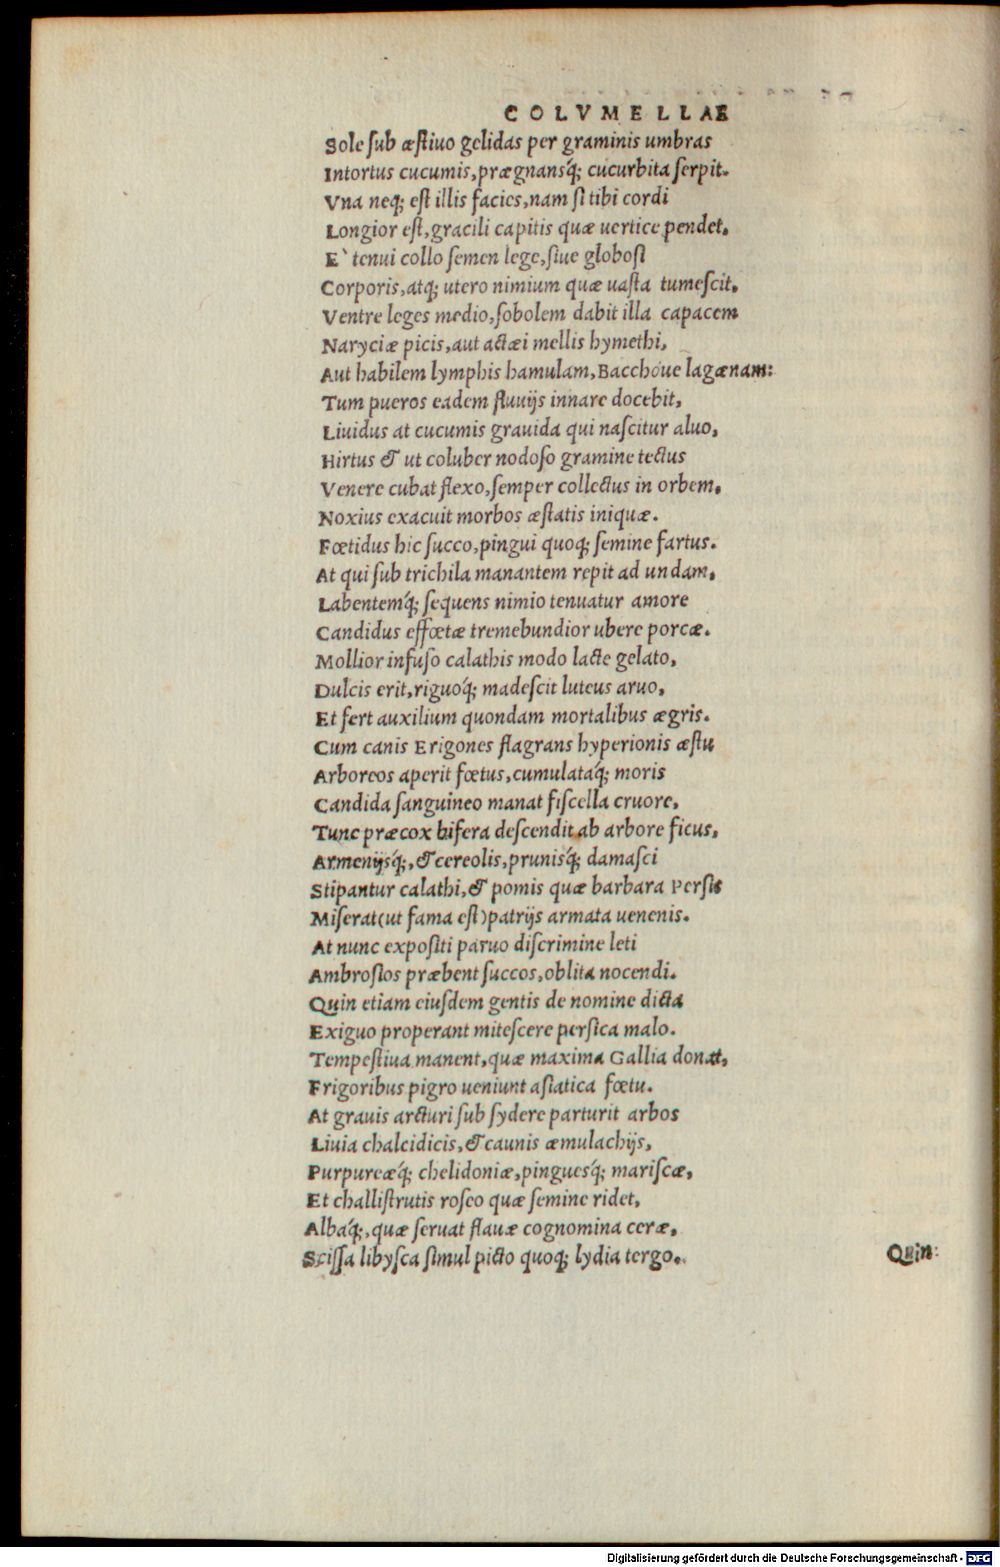 COLVMELLAE
Sole ſub æſtiuo gelidas per graminis umbras
Intortus cucumis, prægnansq́; cucurbita ſerpit.
Vna neq; eſt illis facies, nam ſi tibi cordi
Longior eſt, gracili capitis quæ uertice pendet,
E` tenui collo ſemen lege, ſiue globoſi
Corporis, atq; utero nimium quæ uaſta tumeſcit,
Ventre leges medio, ſobolem dabit illa capacem
Naryciæ picis, aut actæi mellis hymethi,
Aut habilem lymphis hamulam, Bacchoue lagænam:
Tum pueros eadem fluuijs innare docebit,
Liuidus at cucumis grauida qui naſcitur aluo,
Hirtus & ut coluber nodoſo gramine tectus
Venere cubat flexo, ſemper collectus in orbem,
Noxius exacuit morbos æſtatis iniquæ.
Fœtidus hic ſucco, pingui quoq; ſemine fartus.
At qui ſub trichila manantem repit ad undam,
Labentemq́; ſequens nimio tenuatur amore
Candidus effœtæ tremebundior ubere porcæ.
Mollior infuſo calathis modo lacte gelato,
Dulcis erit, riguoq́; madeſcit luteus aruo,
Et fert auxilium quondam mortalibus ægris.
Cum canis Erigones flagrans hyperionis æſtu
Arboreos aperit fœtus, cumulataq́; moris
Candida ſanguineo manat fiſcella cruore,
Tunc præcox bifera deſcendit ab arbore ficus,
Armenijsq́;, & cereolis, prunisq́; damaſci
Stipantur calathi, & pomis quæ barbara Perſis
Miſerat (ut fama eſt) patrijs armata uenenis.
At nunc expoſiti paruo diſcrimine leti
Ambroſios præbent ſuccos, oblita nocendi.
Quin etiam eiuſdem gentis de nomine dicta
Exiguo properant miteſcere perſica malo.
Tempeſtiua manent, quæ maxima Gallia donat,
Frigoribus pigro ueniunt aſiatica fœtu.
At grauis arcturi ſub ſydere parturit arbos
Liuia chalcidicis, & caunis æmulachijs,
Purpureæq́; chelidoniæ, pinguesq́; mariſcæ,
Et challiſtrutis roſeo quæ ſemine ridet,
Albaq́;, quæ ſeruat flauæ cognomina ceræ,
Sciſſa libyſca ſimul picto quoq; lydia tergo.
Quin:
Digitalisierung gefördert durch die Deutsche Forschungsgemeinschaft - DFG